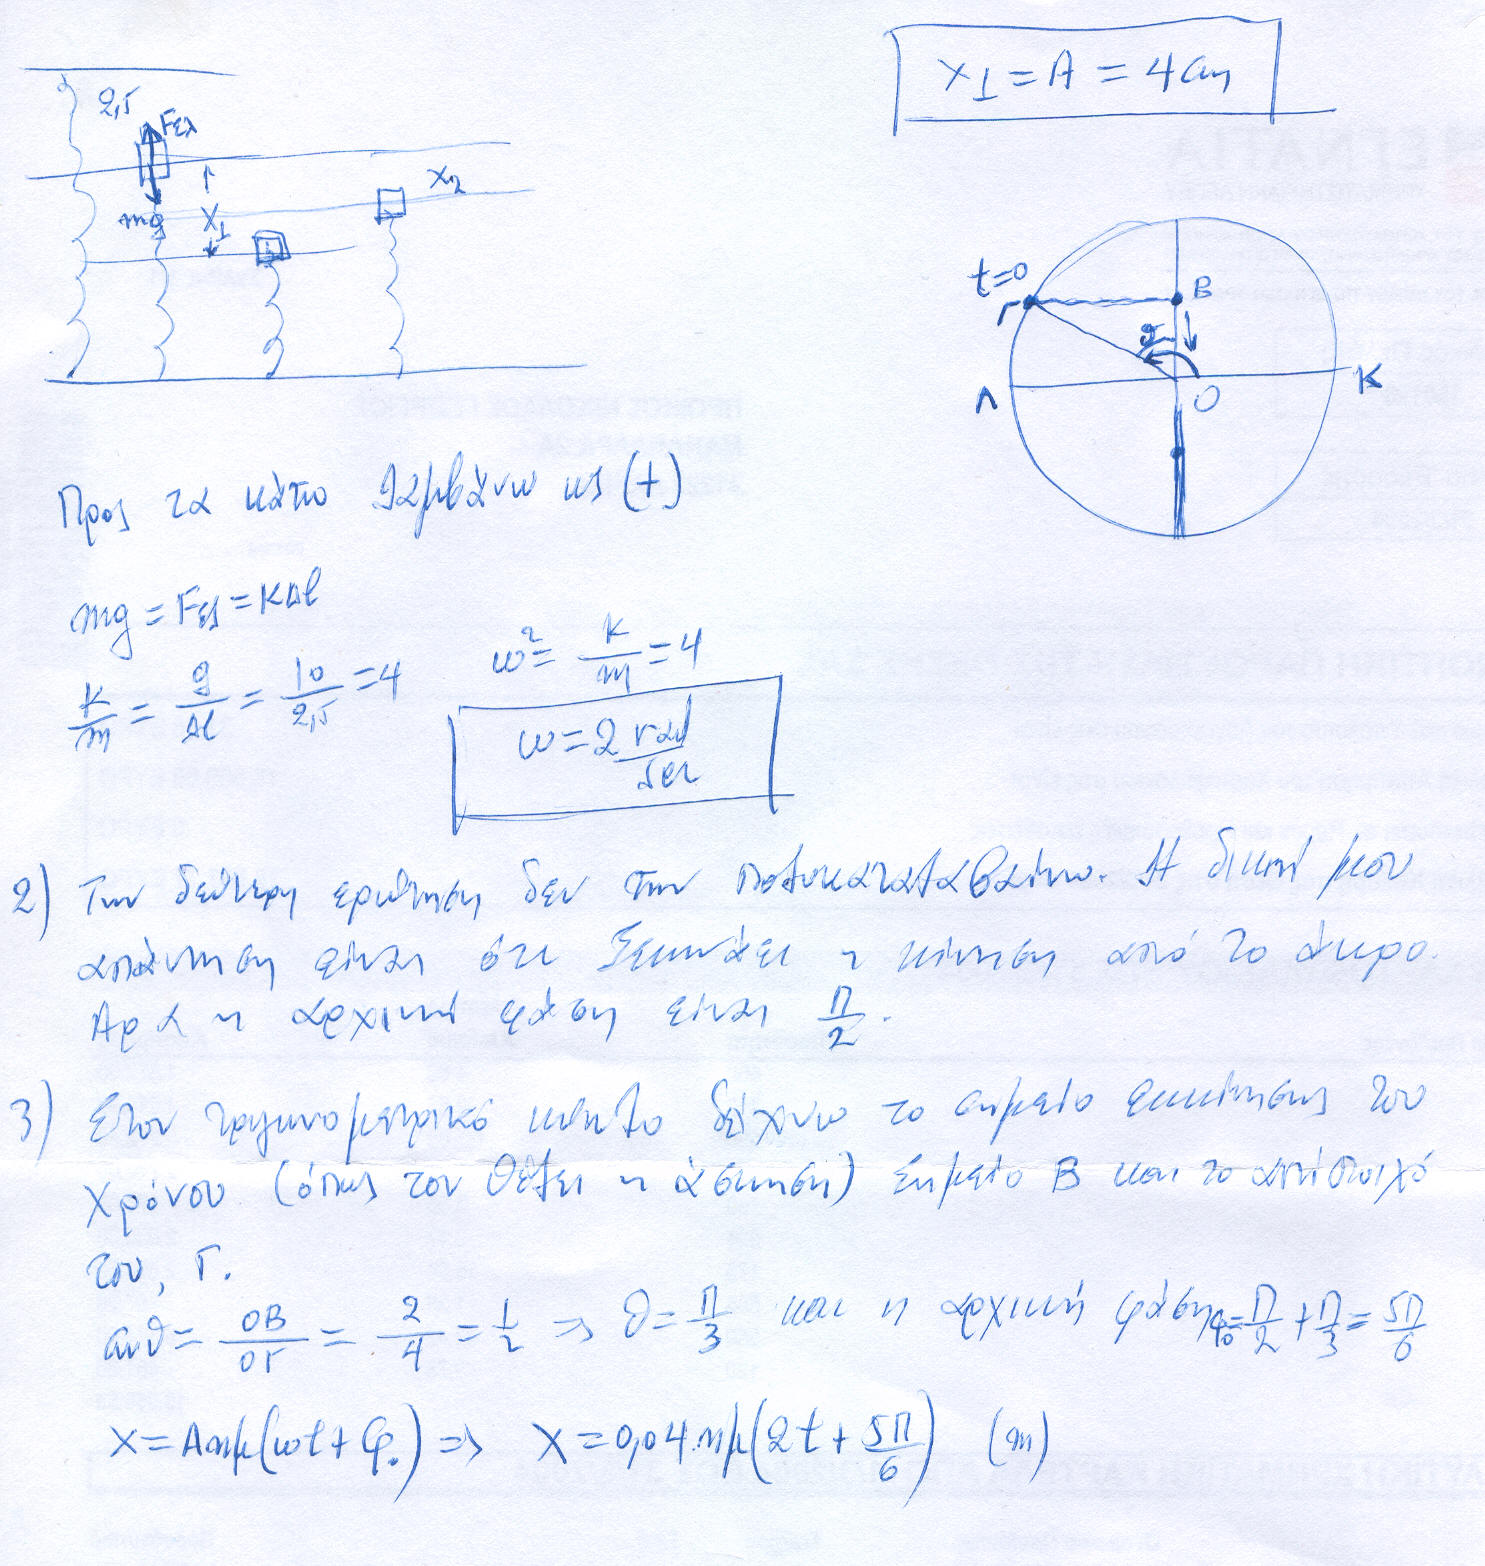 x₁ = A = 4cm
2,5
Fελ
mg
x₁
x₂
t=0
Γ
B
θ
Λ
O
K
Προς τα κάτω λαμβάνω ως (+)
mg = Fελ = KΔl
K/m = g/Δl = 10/2,5 = 4
ω² = K/m = 4
ω = 2 rad/sec
2) Την δεύτερη ερώτηση δεν την πολυκαταλαβαίνω. Η δική μου
απάντηση είναι ότι ξεκινάει η κίνηση από το άκρο.
Άρα η αρχική φάση είναι π/2.
3) Στον τριγωνομετρικό κύκλο δείχνω το σημείο εκκίνησης του
χρόνου (όπως τον θέλει η άσκηση) Σημείο B και το αντίστοιχό
του, Γ.
συνθ = OB/OΓ = 2/4 = 1/2 => θ = π/3 και η αρχική φάση φ₀ = π/2 + π/3 = 5π/6
x = Aημ(ωt + φ₀) => x = 0,04.ημ(2t + 5π/6) (m)